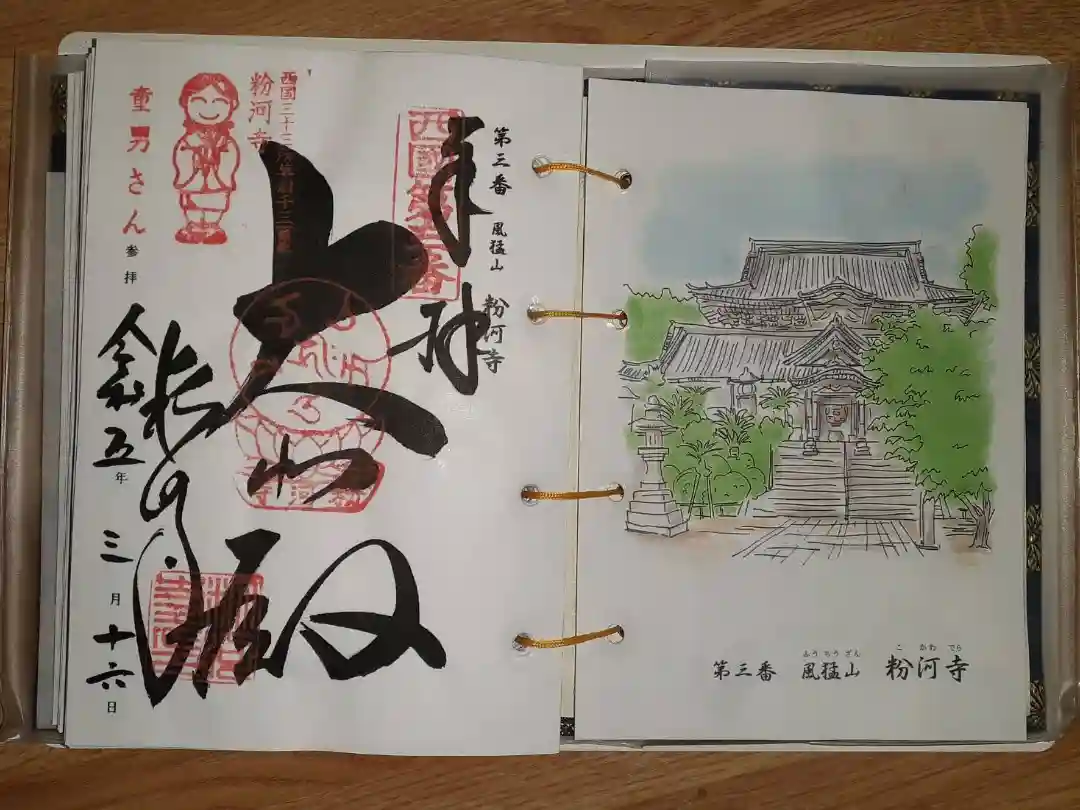 第三番 風猛山 粉河寺
奉拝
西國第三番
大悲殿
粉河寺
童男さん 参拝
令和五年 三月十六日
寺河粉
第三番 風猛山 粉河寺
ふうもうざん こかわでら